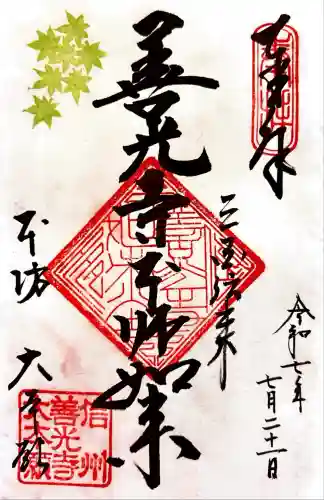 奉拝
三国伝来
善光寺本師如来
令和七年
七月二十一日
本坊
大本願
信州
善光寺
大本願